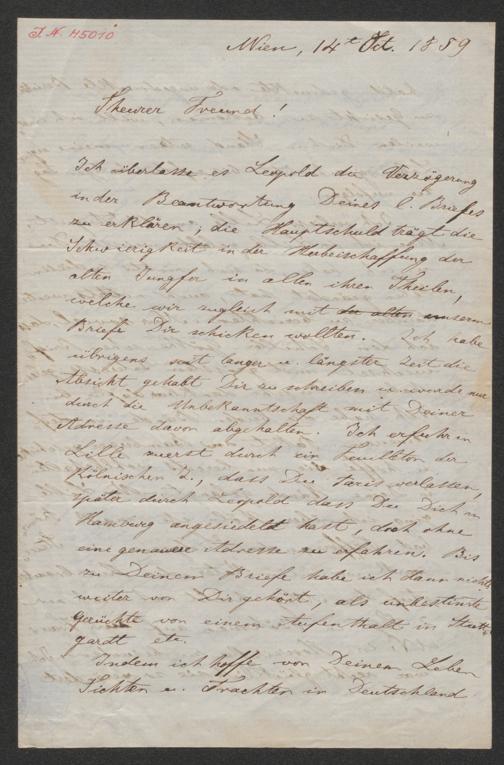 J. N. 45010
Wien, 14t Oct. 1859
Theurer Freund!
Ich überlasse es Leopold die Verzögerung
in der Beantwortung Deines l. Briefes
zu erklären; die Hauptschuld trägt die
Schwierigkeit in der Herbeischaffung der
alten Jungfer in allen ihren Theilen,
welche wir zugleich mit der alten unserm
Briefe Dir schicken wollten. Ich habe
übrigens seit langer u. längster Zeit die
Absicht gehabt Dir zu schreiben u. wurde nur
durch die Unbekanntschaft mit Deiner
Adresse davon abgehalten. Ich erfuhr in
Lille zuerst durch ein Feuilleton der
Kölnischen Z., dass Du Paris verlassen,
später durch Leopold dass Du Dich in
Hamburg angesiedelt hast, doch ohne
eine genauere Adresse zu erfahren. Bis
zu Deinem Briefe habe ich dann nichts
weiter von Dir gehört, als unbestimte
Gerüchte von einem Aufenthalt in Stutt-
gardt etc.
Indem ich hoffe von Deinem Leben
Dichten u. Trachten in Deutschland